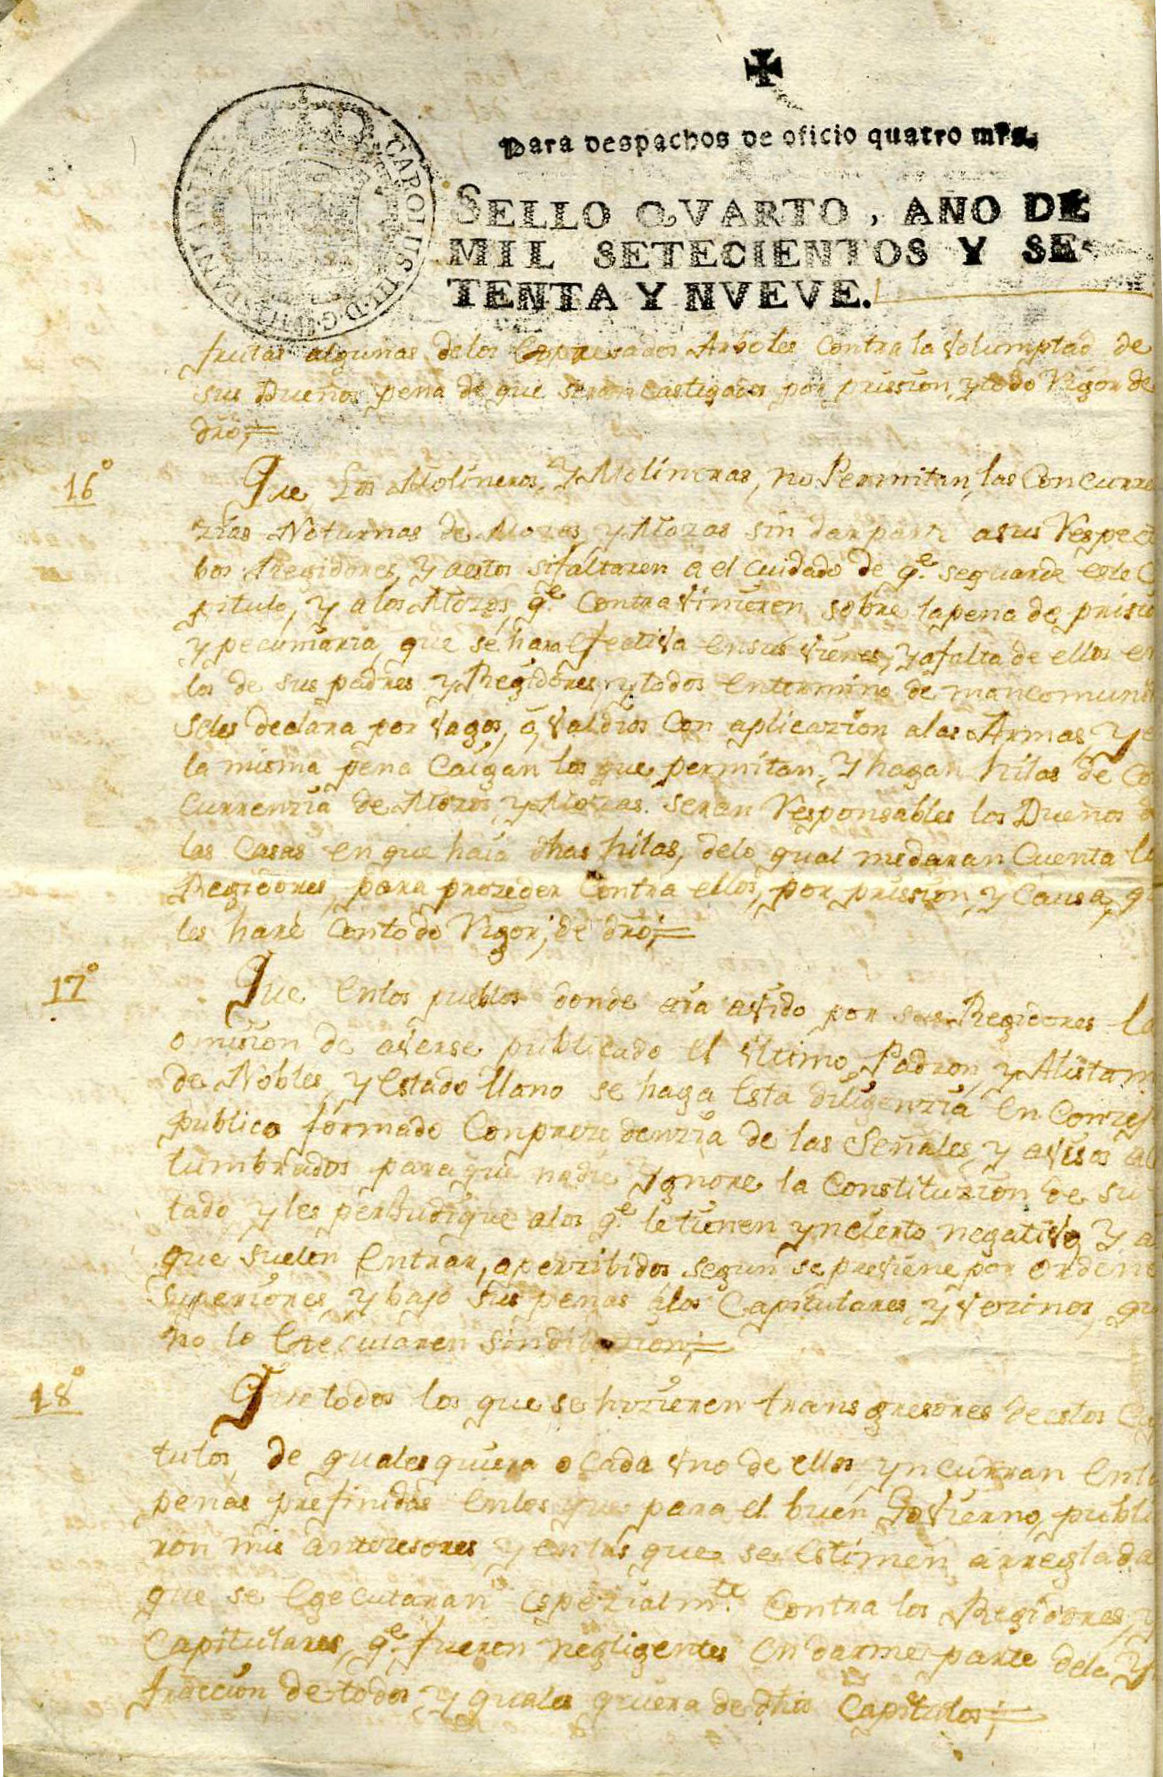 Para despachos de oficio quatro mrs.
CAROLUS III D G HISPANIAR REX
SELLO QVARTO, AÑO DE
MIL SETECIENTOS Y SE-
TENTA Y NVEVE.
frutas algunas delos Expresados Arboles contra la Volumptad de
sus Dueños pena de que seran castigados por prission, y todo Rigor de
dro,=
16º
Que Los Molineros, y Molineras, no Permitan, las Concurre
zias Noturnas de Mozos, y Mozas sin dar parte asus Respecti
bos Regidores, y aestos si faltaren a el cuidado de q.e se guarde este C
pitulo, y a los Mozos, q.e Contravinieren sobre lapena de prisio
y pecuniaria, que se hara efectiva ensus vienes, y afalta de ellos en
los de sus padres y Regidores, y todos entermino de mancomuni
seles declara por vagos, o, valdios con aplicazion alas Armas, y e
la misma pena Caigan los que permitan, y hagan hilas de Co
currenzia de Mozos, y Mozas. seran Responsables los Dueños d
las Casas en que haia dhas hilas, delo qual me daran Cuenta lo
Regidores, para prozeder Contra ellos, por prission, y Causa, q
les haré Contodo Rigor, de dro;=
17º
Que Enlos pueblos donde aia avido por sus Regidores la
omision de averse publicado el Vltimo Padron, y Alistam
de Nobles, y Estado llano se haga Esta diligenzia en Conzej
publico formado Conprezedenzia de las Señales, y avisos ac
tumbrados paraque nadie Ygnore la Constituzion de su
tado y les perjudique alos q.e le tienen yncierto negativo, y a
que suelen Entrar, aperzibidos segun se previene por ordene
Superiores, y bajo sus penas alos Capitulares, y Vezinos, qu
no lo Executaren sindilazion;=
18º
Que todos los que se hizieren transgresores de estos Ca
tulos de quales quiera o cada vno de ellos, yncurran Enla
penas prefinidas enlos que para el buen Govierno, publi
ron mis antezesores, y enlas que se Estimen arreglada
que se Egecutaran espezialm.te Contra los Regidores, y
Capitulares, q.e fueren negligentes en darme parte dela Y
fraccion de todos, y quales quiera de dhos Capitulos;=